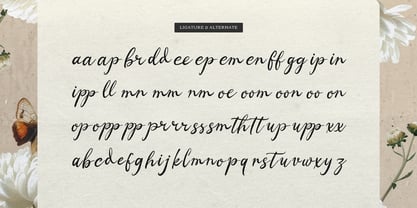 LIGATURE & ALTERNATE
aa ap br dd ee ep em en ff gg ip in
ipp ll mn mm nm oe oom oon oo on
op opp pp pr rr ss sm th tt up upp xx
abcdefghijklmnopqrstuvwxyz